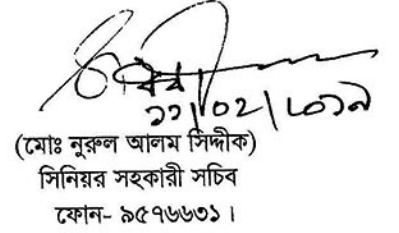 ১১/০২/২০১৯
(মোঃ নুরুল আলম সিদ্দীক)
সিনিয়র সহকারী সচিব
ফোন- ৯৫৭৬৬৩১।